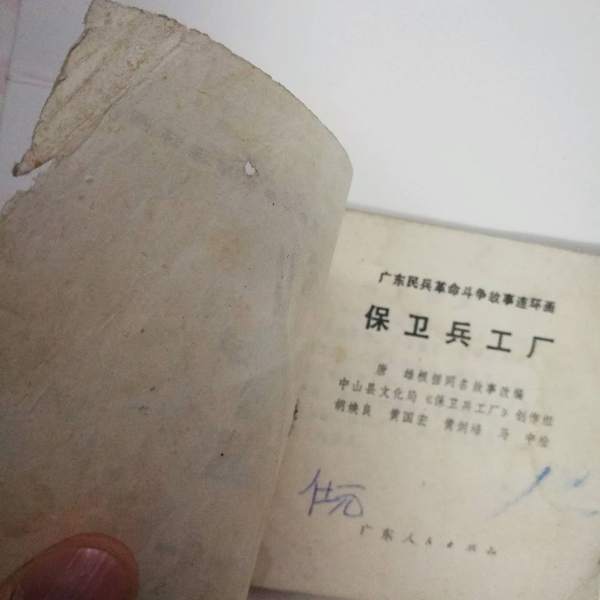 广东民兵革命斗争故事连环画
保卫兵工厂
唐 雄根据同名故事改编
中山县文化局《保卫兵工厂》创作组
胡焕良 黄国宏 黄剑培 马 中绘
仕元
广东人民出版社